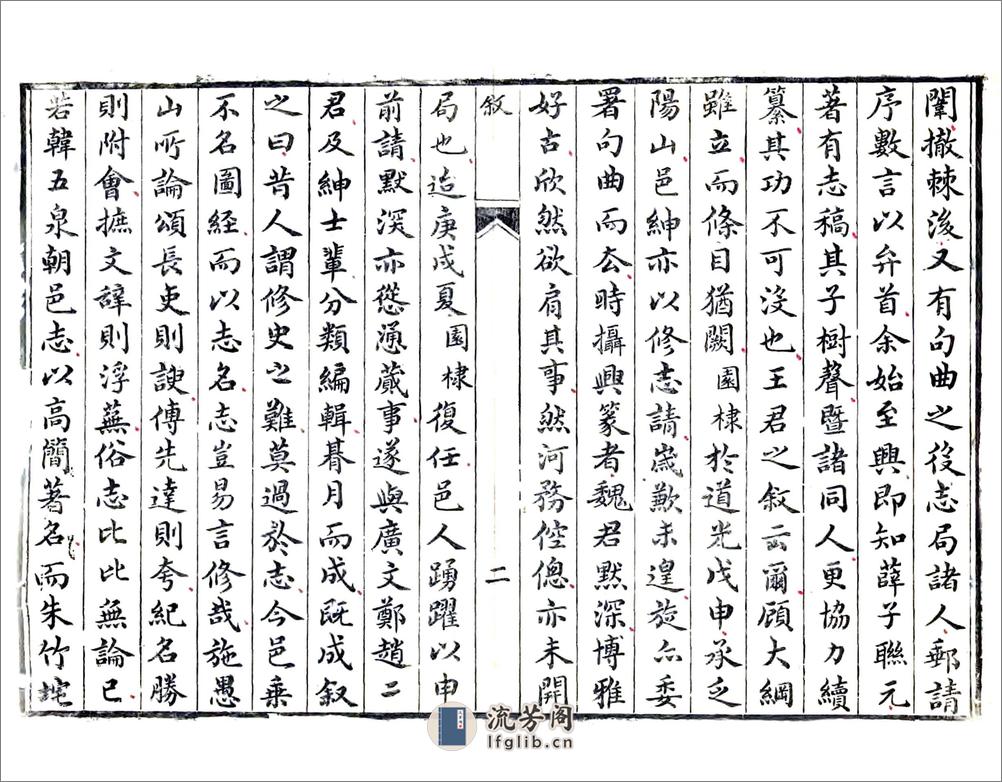 闈撤棘後又有句曲之役志局諸人郵請
序數言以弁首余始至興即知薛子聯元
著有志稿其子樹聲暨諸同人更協力續
纂其功不可沒也王君之敘云爾顧大綱
雖立而條目猶闕園棣於道光戊申承乏
陽山邑紳亦以修志請歲歉未遑旋亦委
署句曲而去時攝興篆者魏君默深博雅
好古欣然欲肩其事然河務倥傯亦未開
敘
二
局也迨庚戌夏園棣復任邑人踴躍以申
前請默深亦慫慂蕆事遂與廣文鄭趙二
君及紳士輩分類編輯朞月而成既成叙
之曰昔人謂修史之難莫過於志今邑乗
不名圖經而以志名志豈易言修哉施愚
山所論頌長吏則諛傳先達則夸紀名勝
則附會摭文辭則浮蕪俗志比比無論已
若韓五泉朝邑志以高簡著名而朱竹垞
流芳阁
lfglib.cn